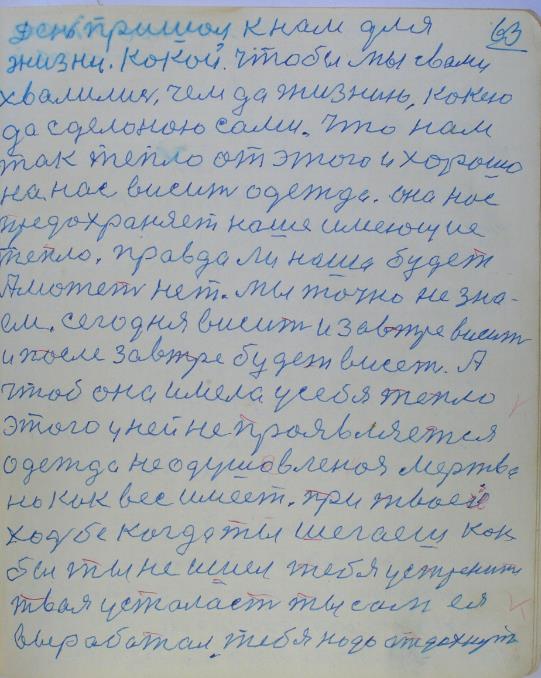 63
день пришол к нам для
жизни. Кокой. чтобы мы свами
хвалилис, чем да жизнию, кокею
да сделоною сами. Что нам
так тепло от этого и хорошо
на нас висит одежда. она нас
предохраняет наше имеющие
тепло. правда ли наша будет
А может нет. мы точно не зна-
ем. сегодня висит и завтре висит
и после завтре будет висет. А
чтоб она имела у себя тепло
этого у ней не проявляется
одежда не одушовленоя мертва
но как вес имеет. при твоей
ходбе когда ты шегаеш как
бы ты не шел тебя устренит
твая усталаст ты сам ея
выработал, тебя нодо отдохнут